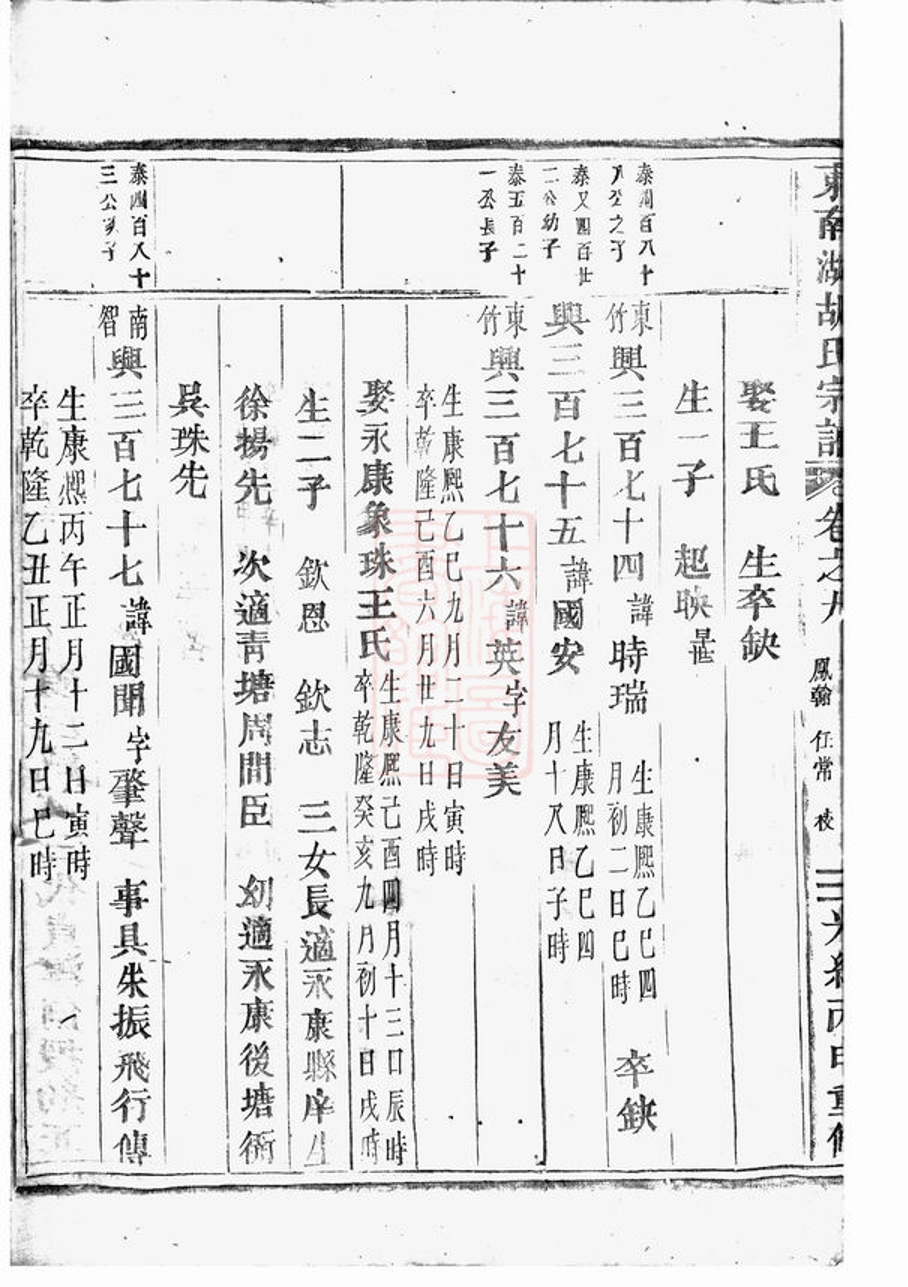 東南湖胡氏宗譜 卷之九 鳳翰 任常 校 三 光緒丙申重修
娶王氏 生卒缺
生一子 起映
泰四百八十
八公之子
東竹 興三百七十四 諱 時瑞 生康熙乙巳四
月初二日巳時 卒缺
泰又四百廿
二公幼子
興三百七十五 諱 國安 生康熙乙巳四
月十八日子時
泰五百二十
一公長子
東竹 興三百七十六 諱 英 字 友美
生康熙乙巳九月二十日寅時
卒乾隆己酉六月廿九日戌時
娶永康象珠王氏 生康熙己酉四月十三日辰時
卒乾隆癸亥九月初十日戌時
生二子 欽恩 欽志 三女長適永康縣庠生
徐揚先 次適青塘周間臣 幼適永康後塘衖
吳珠先
泰四百八十
三公 子
南智 興三百七十七 諱 國聞 字 肇聲 事具朱振飛行傳
生康熙丙午正月十二日寅時
卒乾隆乙丑正月十九日巳時